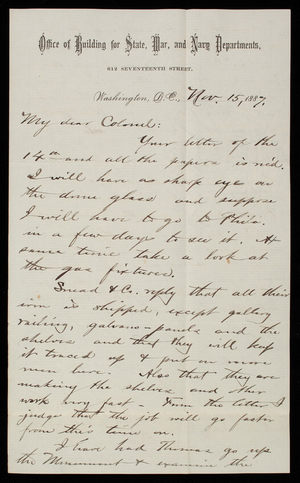 Office of Building for State, War, and Navy Departments,
612 SEVENTEENTH STREET,
Washington, D.C., Nov. 15, 1887.
My dear Colonel:
Your letter of the
14th and all the papers is rec'd.
I will have a sharp eye on
the dome glass and suppose
I will have to go to Phila.
in a few days to see it. At
same time take a look at
the gas fixtures.
Snead & Co. reply that all their
iron is shipped, except gallery
railing, galvano panels and the
shelves and that they will keep
it traced up & put on more
men here. Also that they are
making the shelves and other
work very fast. From the letter I
judge that the job will go faster
from this time on.
I have had Thomas go up
the Monument & examine the